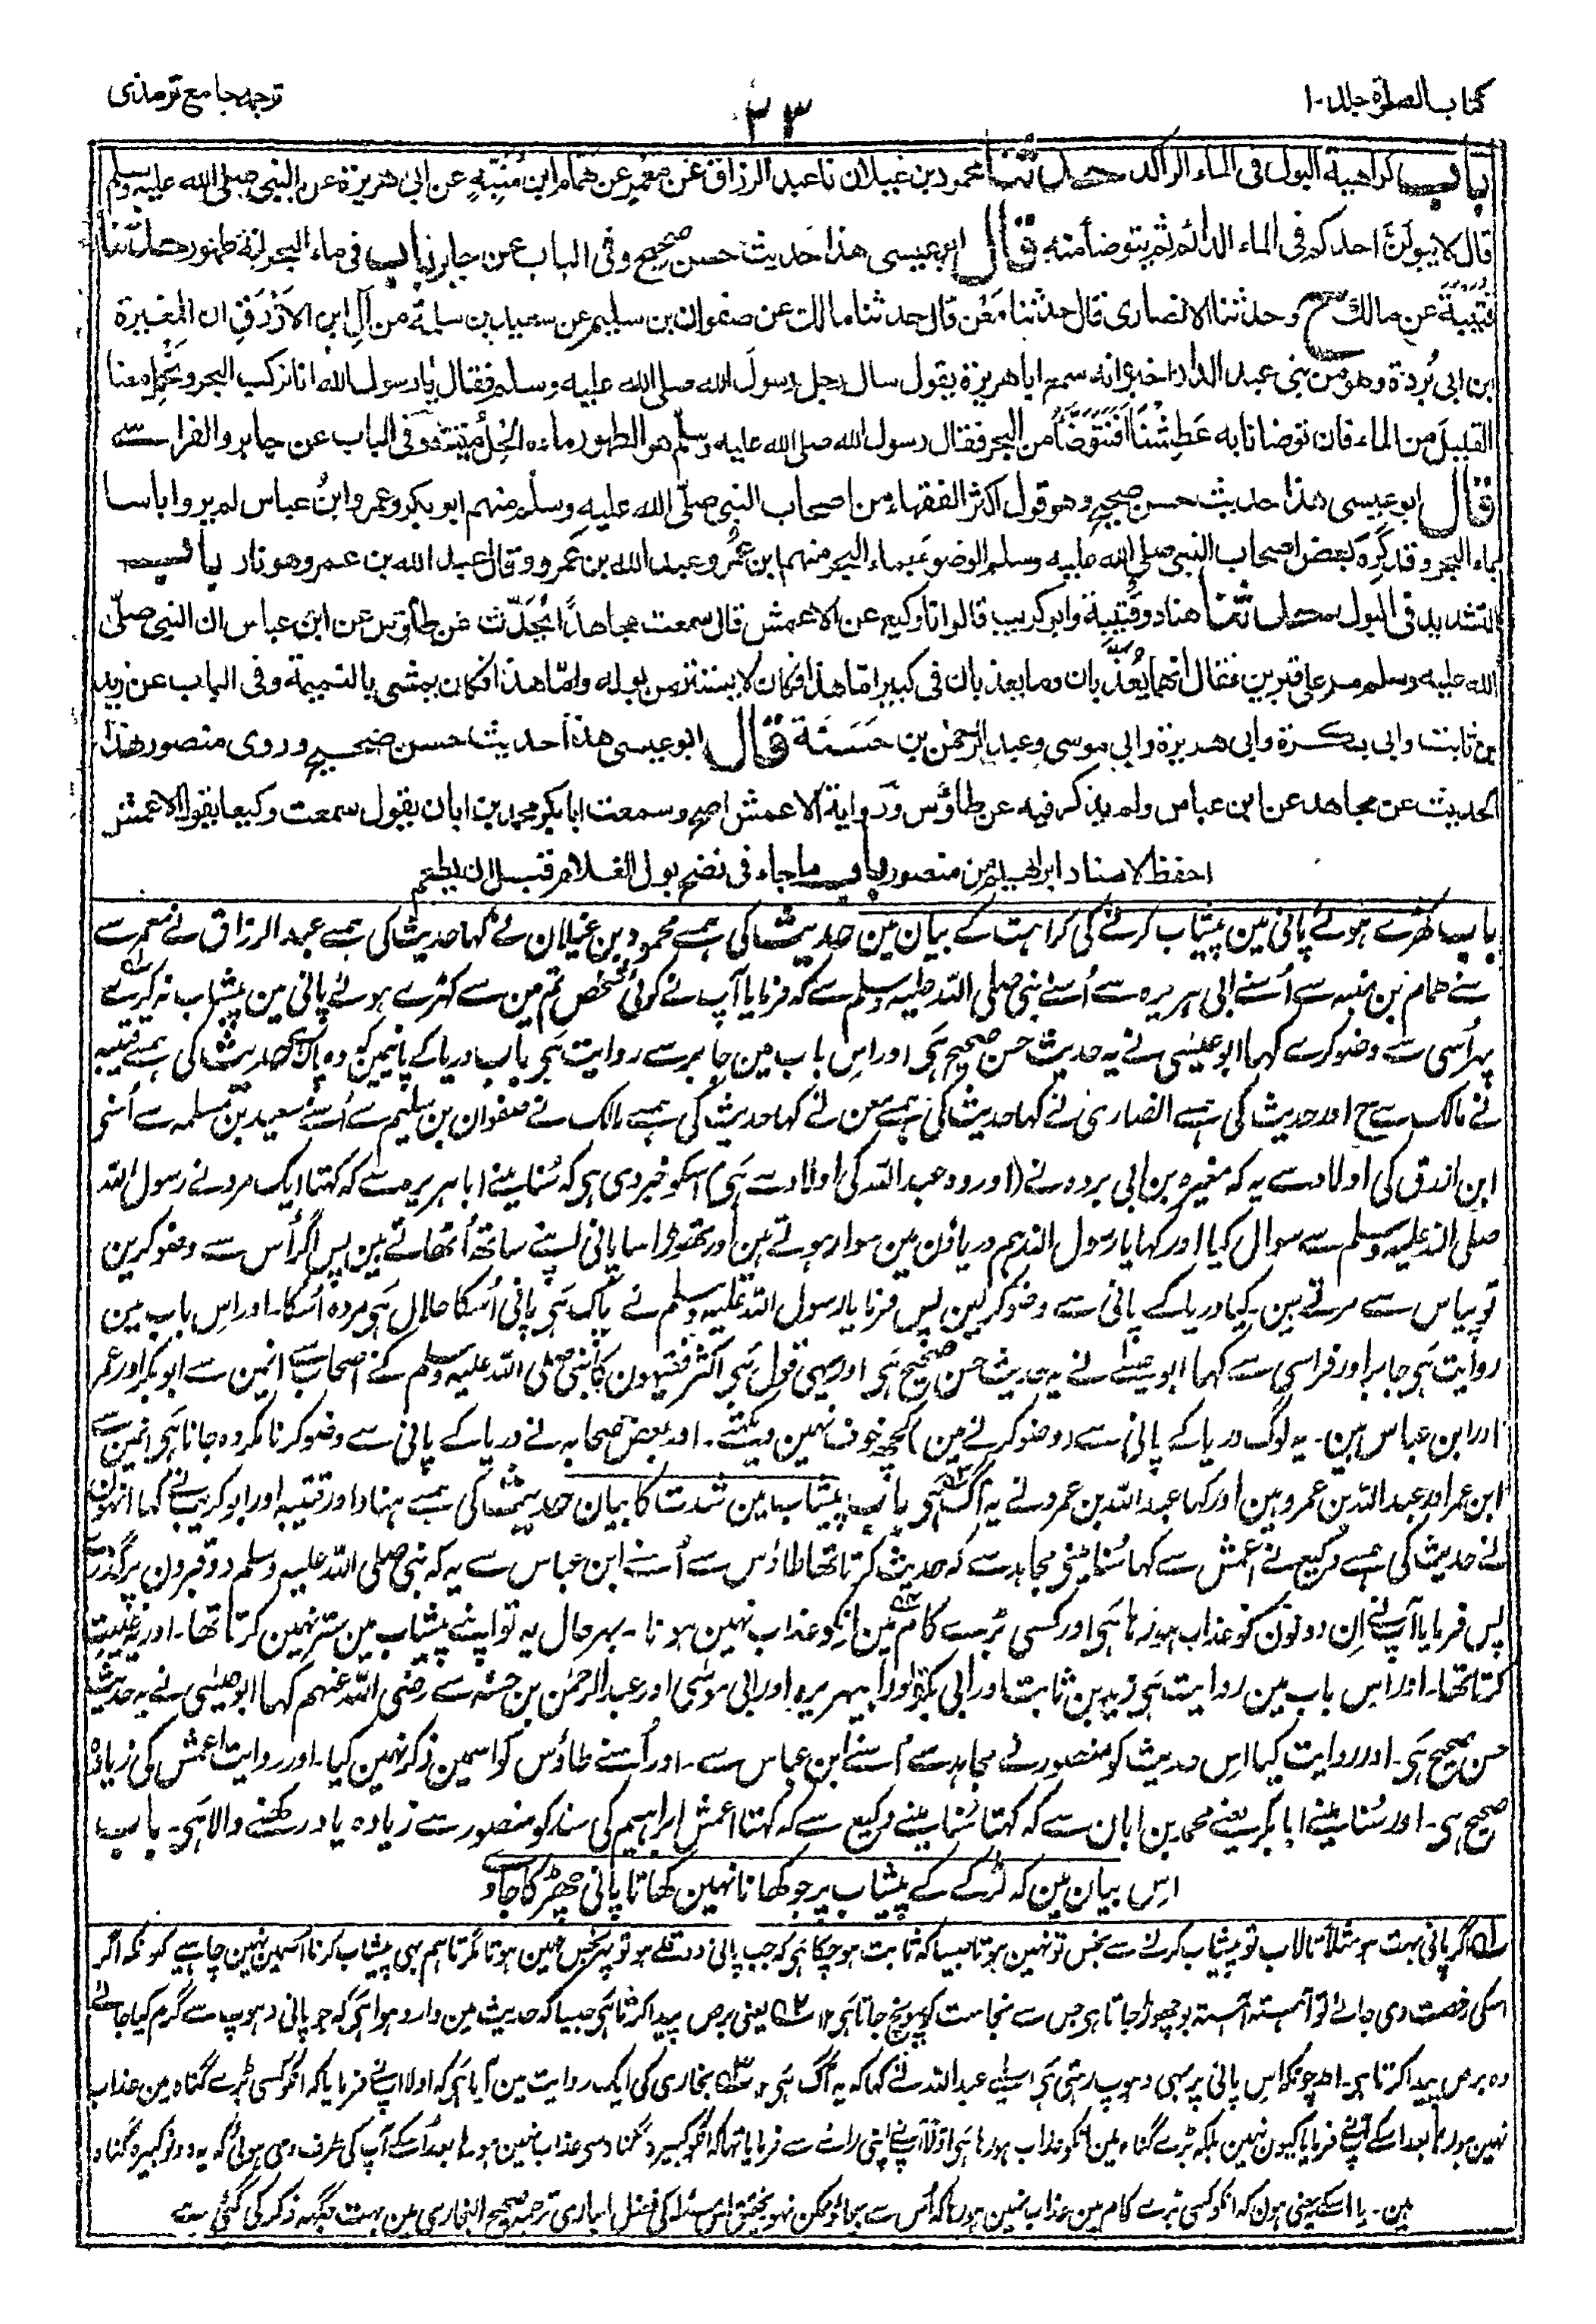 کتاب الصلوٰة جلد۔۱
۳۳
ترجمہ جامع ترمذی
باب کراهیة البول فی الماء الراکد حدثنا محمود بن غیلان نا عبد الرزاق عن معمر عن همام ابن منبه عن ابی هریرة عن النبی صلی الله علیه وسلم
قال لا یبولن احدکم فی الماء الدائم ثم یتوضأ منه قال ابو عیسی هذا حدیث حسن صحیح و فی الباب عن جابر باب فی ماء البحر انه طهور حدثنا
قتیبة عن مالک ح و حدثنا الانصاری قال حدثنا معن قال حدثنا مالک عن صفوان بن سلیم عن سعید بن سلمة من آل ابن الازرق ان المغیرة
ابن ابی بردة وهو من بنی عبد الدار اخبره انه سمع ابا هریرة یقول سال رجل رسول الله صلی الله علیه وسلم فقال یا رسول الله انا نرکب البحر و نحمل معنا
القلیل من الماء فان توضانا به عطشنا افنتوضأ من البحر فقال رسول الله صلی الله علیه وسلم هو الطهور ماءه الحل میتته و فی الباب عن جابر والفراسی
قال ابو عیسی هذا حدیث حسن صحیح وهو قول اکثر الفقهاء من اصحاب النبی صلی الله علیه وسلم منهم ابو بکر و عمر وابن عباس لم یروا باسا
بماء البحر و قد کره بعض اصحاب النبی صلی الله علیه وسلم الوضوء بماء البحر منهم ابن عمر و عبد الله بن عمرو و قال عبد الله بن عمرو هو نار باب
التشدید فی البول حدثنا هناد و قتیبة وابو کریب قالوا نا وکیع عن الاعمش قال سمعت مجاهدا یحدث عن طاؤس عن ابن عباس ان النبی صلی
الله علیه وسلم مر علی قبرین فقال انهما یعذبان وما یعذبان فی کبیر اما هذا فکان لا یستتر من بوله واما هذا فکان یمشی بالنمیمة و فی الباب عن زید
بن ثابت وابی بکرة وابی هریرة وابی موسی و عبد الرحمن بن حسنة قال ابو عیسی هذا حدیث حسن صحیح و روی منصور هذا
الحدیث عن مجاهد عن ابن عباس ولم یذکر فیه عن طاؤس و روایة الاعمش اصح و سمعت ابا بکر محمد بن ابان یقول سمعت وکیعا یقول الاعمش
احفظ لاسناد ابراهیم من منصور باب ما جاء فی نضح بول الغلام قبل ان یطعم
باب کھڑے ہوئے پانی مین پیشاب کرنے کی کراہت کے بیان مین حدیث کی ہمسے محمود بن غیلان نے کہا حدیث کی ہمسے عبد الرزاق نے معمر سے
سنے همام بن منبہ سے اُسنے ابی ہریرہ سے اُسنے نبی صلی اللہ علیہ وسلم سے کہ فرمایا آپ نے کوئی شخص تم مین سے کھڑے ہوئے پانی مین پیشاب نہ کرے
پہر اُسی سے وضو کرے کہا ابو عیسیٰ نے یہ حدیث حسن صحیح ہَی اور اِس باب مین جابر سے روایت ہَی باب دریا کے پانیمین کہ وہ پاک ہَی حدیث کی ہمسے قتیبہ
نے مالک سے ح اور حدیث کی ہمسے انصاری نے کہا حدیث کی ہمسے معن نے کہا حدیث کی ہمسے مالک نے صفوان بن سلیم سے اُسنے سعید بن مسلمہ سے اُسنی
ابن ازرق کی اولاد سے یہ کہ مغیرہ بن ابی بردہ نے (اور وہ عبد اللہ کی اولاد سے ہَی) اسکو خبر دی ہی کہ سُنا مینے ابا ہریرہ سے کہ کہتا ایک مرد نے رسول اللہ
صلی اللہ علیہ وسلم سے سوال کیا اور کہا یا رسول اللہ ہم دریاؤن مین سوار ہوتے ہین اور تھوڑا سا پانی اپنے ساتھ اُٹھاتے ہین پس اگر اُس سے وضو کرین
تو پیاس سے مرتے ہین۔ کیا دریا کے پانی سے وضو کر لین پس فرمایا رسول اللہ علیہ وسلم نے پاک ہَی پانی اُسکا حلال ہَی مردہ اُسکا۔ اور اِس باب مین
روایت ہَی جابر اور فراسی سے کہا ابو عیسے نے یہ حدیث حسن صحیح ہَی اور یہی قول ہَی اکثر فقیہون کا نبی صلی اللہ علیہ وسلم کے اصحاب سے انمین سے ابو بکر اور عمر
اور ابن عباس ہین۔ یہ لوگ دریا کے پانی سے (وضو کرنے مین) کچھ خوف نہین دیکہتے۔ اور بعض صحابہ نے دریا کے پانی سے وضو کرنا مکروہ جانا ہَی انمین سے
ابن عمر اور عبد اللہ بن عمرو ہین اور کہا عبد اللہ بن عمرو نے یہ آگ ہَی باب پیشاب مین شدت کا بیان حدیث کی ہمسے ہناد اور قتیبہ اور ابو کریب نے کہا انہون
نے حدیث کی ہمسے وکیع نے اعمش سے کہا سُنا مینے مجاہد سے کہ حدیث کرتا تھا طاؤس سے اُسنے ابن عباس سے یہ کہ نبی صلی اللہ علیہ وسلم دو قبرون پر گذرے
پس فرمایا آپ نے اِن دونون کو عذاب ہو رہا ہَی اور کسی بڑے کام مین انکو عذاب نہین ہوتا۔ بہر حال یہ تو اپنے پیشاب مین ستر نہین کرتا تھا۔ اور یہ غیبت
کرتا تھا۔ اور اس باب مین روایت ہَی زید بن ثابت اور ابی بکرة اور ابیہریرہ اور ابی موسٰی اور عبد الرحمٰن بن حسنہ سے رضی اللہ عنہم کہا ابو عیسٰی نے یہ حدیث
حسن صحیح ہَی۔ اور روایت کیا اِس حدیث کو منصور نے مجاہد سے اُسنے ابن عباس سے۔ اور اُسنے طاؤس کو اسمین ذکر نہین کیا۔ اور روایت اعمش کی زیادہ
صحیح ہی۔ اور سُنا مینے ابا بکر یعنے محمد بن ابان سے کہ کہتا سُنا مینے وکیع سے کہ کہتا اعمش ابراہیم کی سند کو منصور سے زیادہ یاد رکھنے والا ہَی۔ باب
اِس بیان مین کہ لڑکے کے پیشاب پر جو کھانا نہین کھاتا پانی چھڑکا جاوے
۱ اگر پانی بہت ہو مثلاً تالاب تو پیشاب کرنے سے نجس تو نہین ہوتا جیسا کہ ثابت ہو چکا ہَی کہ جب پانی دو قلے ہو تو پہر نجس نہین ہوتا مگر تاہم بھی پیشاب کرنا اسمین نہین چاہیے کیونکہ اگر
اسکی رخصت دی جائے تو آہستہ آہستہ بو چھوڑ جاتا ہی جس سے نجاست کو پہونچ جاتا ہَی ۱۲ ۲ یعنی برص پیدا کرتا ہَی جیسا کہ حدیث مین وارد ہوا ہَی کہ جو پانی دہوپ سے گرم کیا جائے
وہ برص پیدا کرتا ہی۔ اور چونکہ اِس پانی پر بھی دہوپ رہتی ہَی اسلیے عبد اللہ نے کہا کہ یہ آگ ہَی ۱۲ ۳ بخاری کی ایک روایت مین آیا ہَی کہ اولا آپنے فرمایا کہ انکو کسی بڑے گناہ مین عذاب
نہین ہو رہا بعد اسکے آپنے فرمایا کیون نہین بلکہ بڑے گناہ مین انکو عذاب ہو رہا ہَی اولاً آپنے اپنی رائے سے فرمایا تھا کہ انکو کبیرہ گناہ سے عذاب نہین ہوتا بعد اُسکے آپ کی طرف وحی ہوئی کہ یہ دونو کبیرہ گناہ
ہین۔ یا اسکے یہ معنی ہون کہ انکو کسی بڑے کام مین عذاب نہین ہو رہا کہ اُس سے بچاؤ ممکن نہو تحقیق اس مسئلہ کی فضل الباری ترجمہ صحیح البخاری مین بہت جگہہ ذکر کی گئی ہے